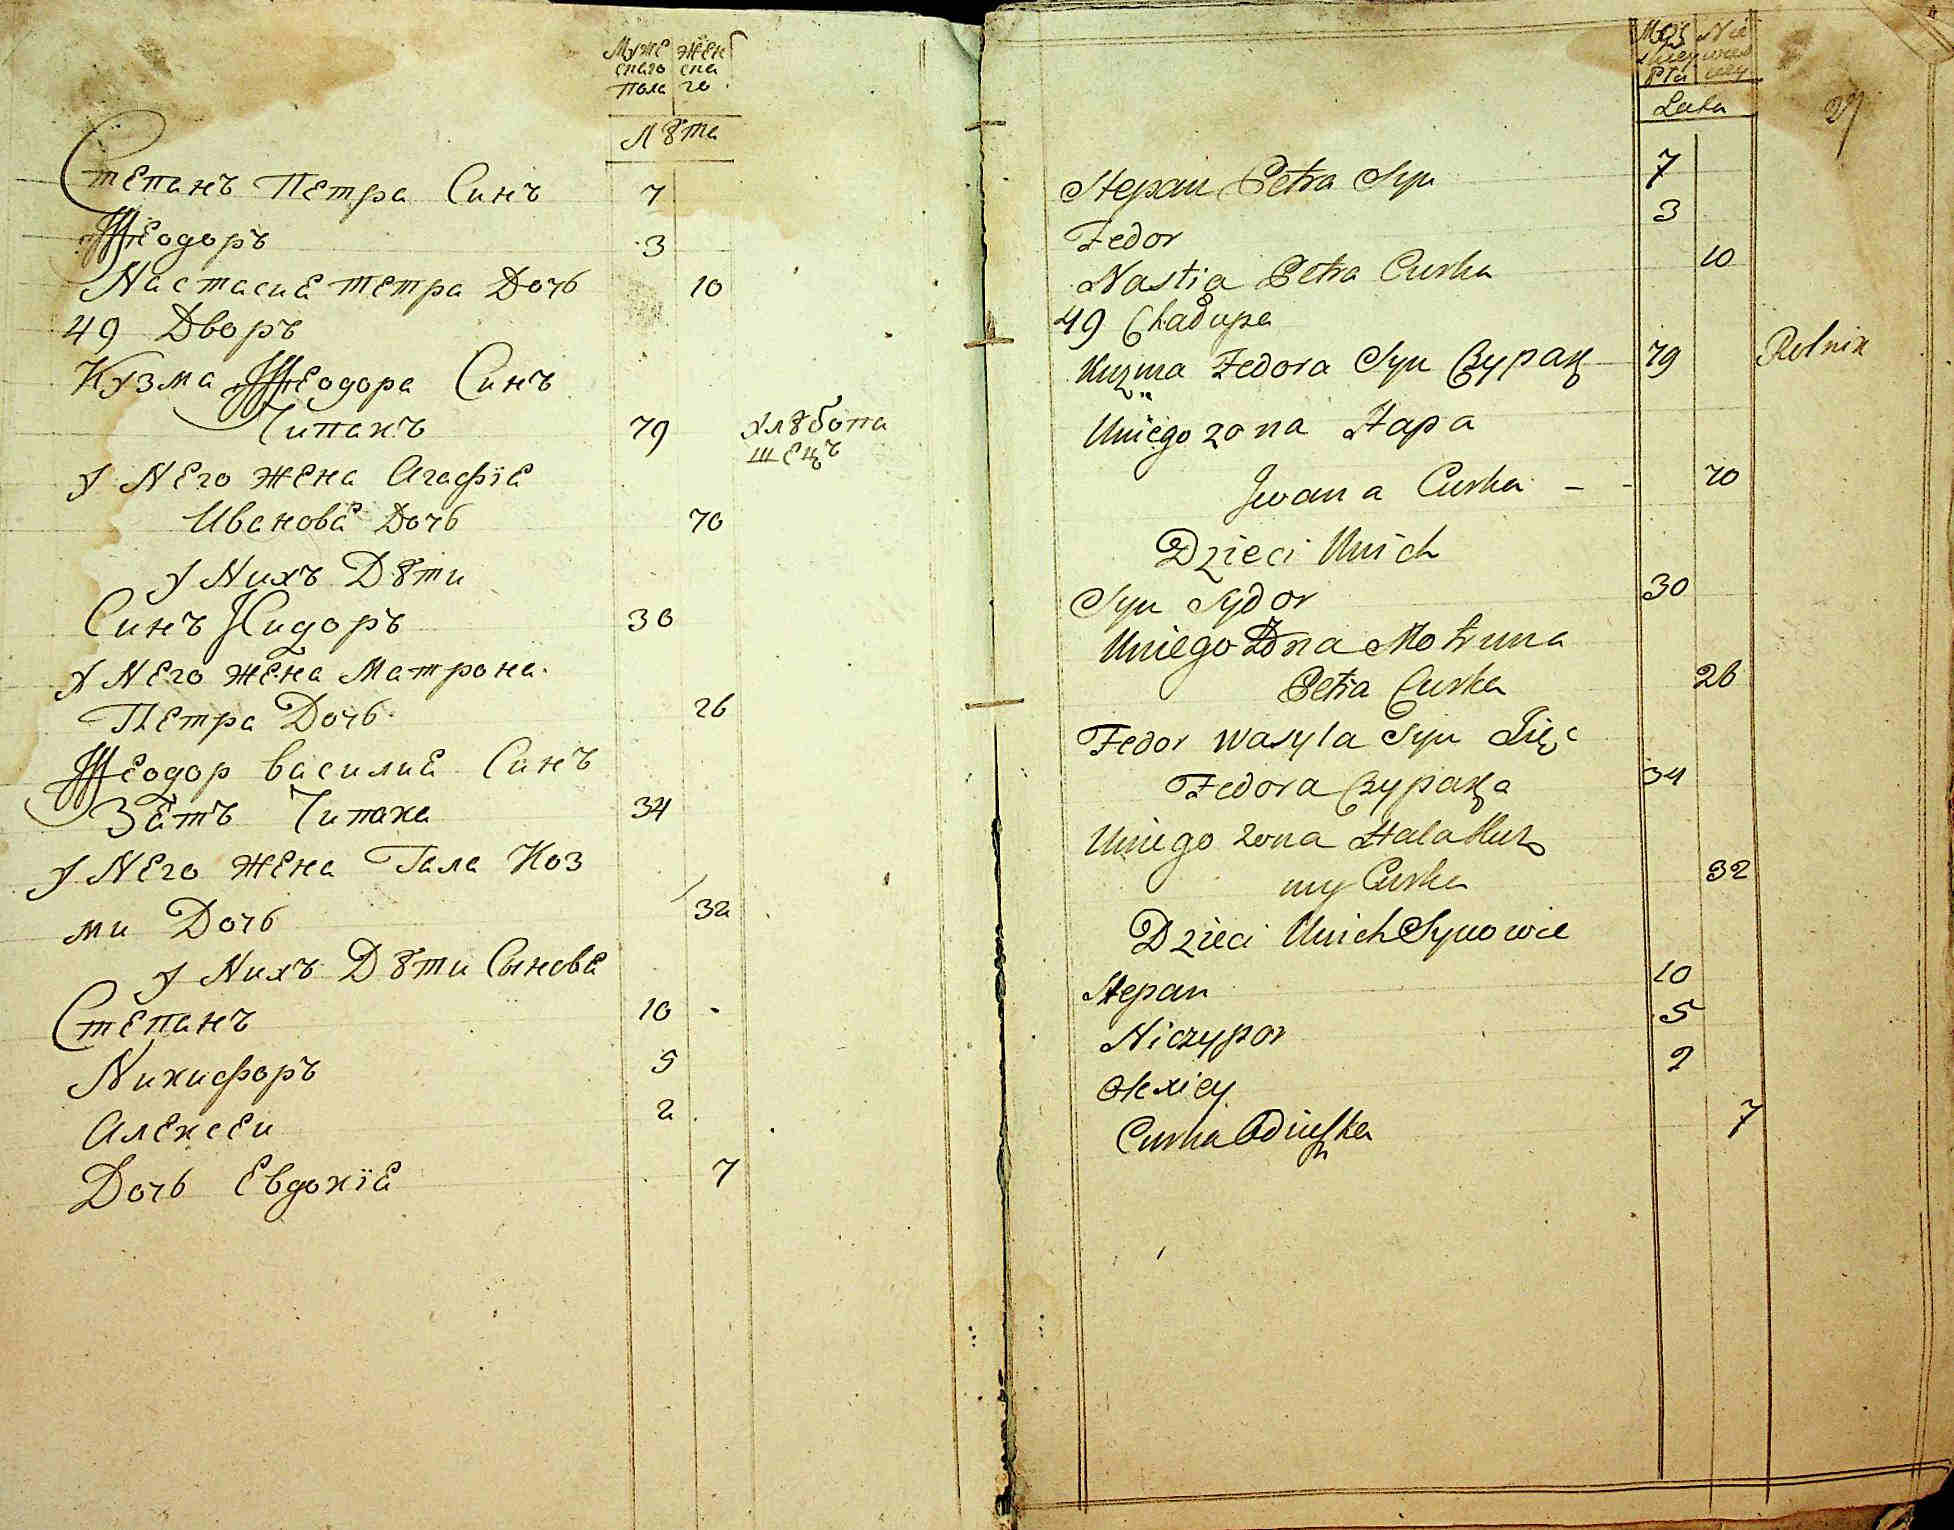 Муже Жен
скаго ска
Пола го
Лѣта
Степанъ Петра Синъ 7
Ѳеодоръ 3
Настасиѣ Петра Дочь 10
49 Дворъ
Кузма Ѳеодора Синъ
Чипакъ 79 хлѣбопа
шецъ
У Него Жена Агафїѣ
Иванова Дочь 70
У Нихъ Дѣти
Синъ Сидоръ 30
У Него Жена Матрона
Петра Дочь 26
Ѳеодор Василиѣ Синъ
Зѣть Чипака 34
У Него Жена Гала Коз
ми Дочь 32
У Нихъ Дѣти Сынова
Степанъ 10
Никифоръ 5
Алексеи 2
Дочь Евдокїѣ 7
27
Lata
Stepan Petra Syn 7
Fedor 3
Nastia Petra Curka 10
49 Chałupa
Kuzma Fedora Syn Czypak 79 Rolnik
Uniego zona Hapa
Jwana Curka - - 70
Dzieci Unich
Syn Sydor 30
Uniego Zona Motruna
Petra Curka 26
Fedor Wasyla Syn Zięć
Fedora Czypaka 34
Uniego zona Hala Kuz
my Curka 32
Dzieci Unich Synowie
Stepan 10
Niczypor 5
Olexiey 2
Curka 7